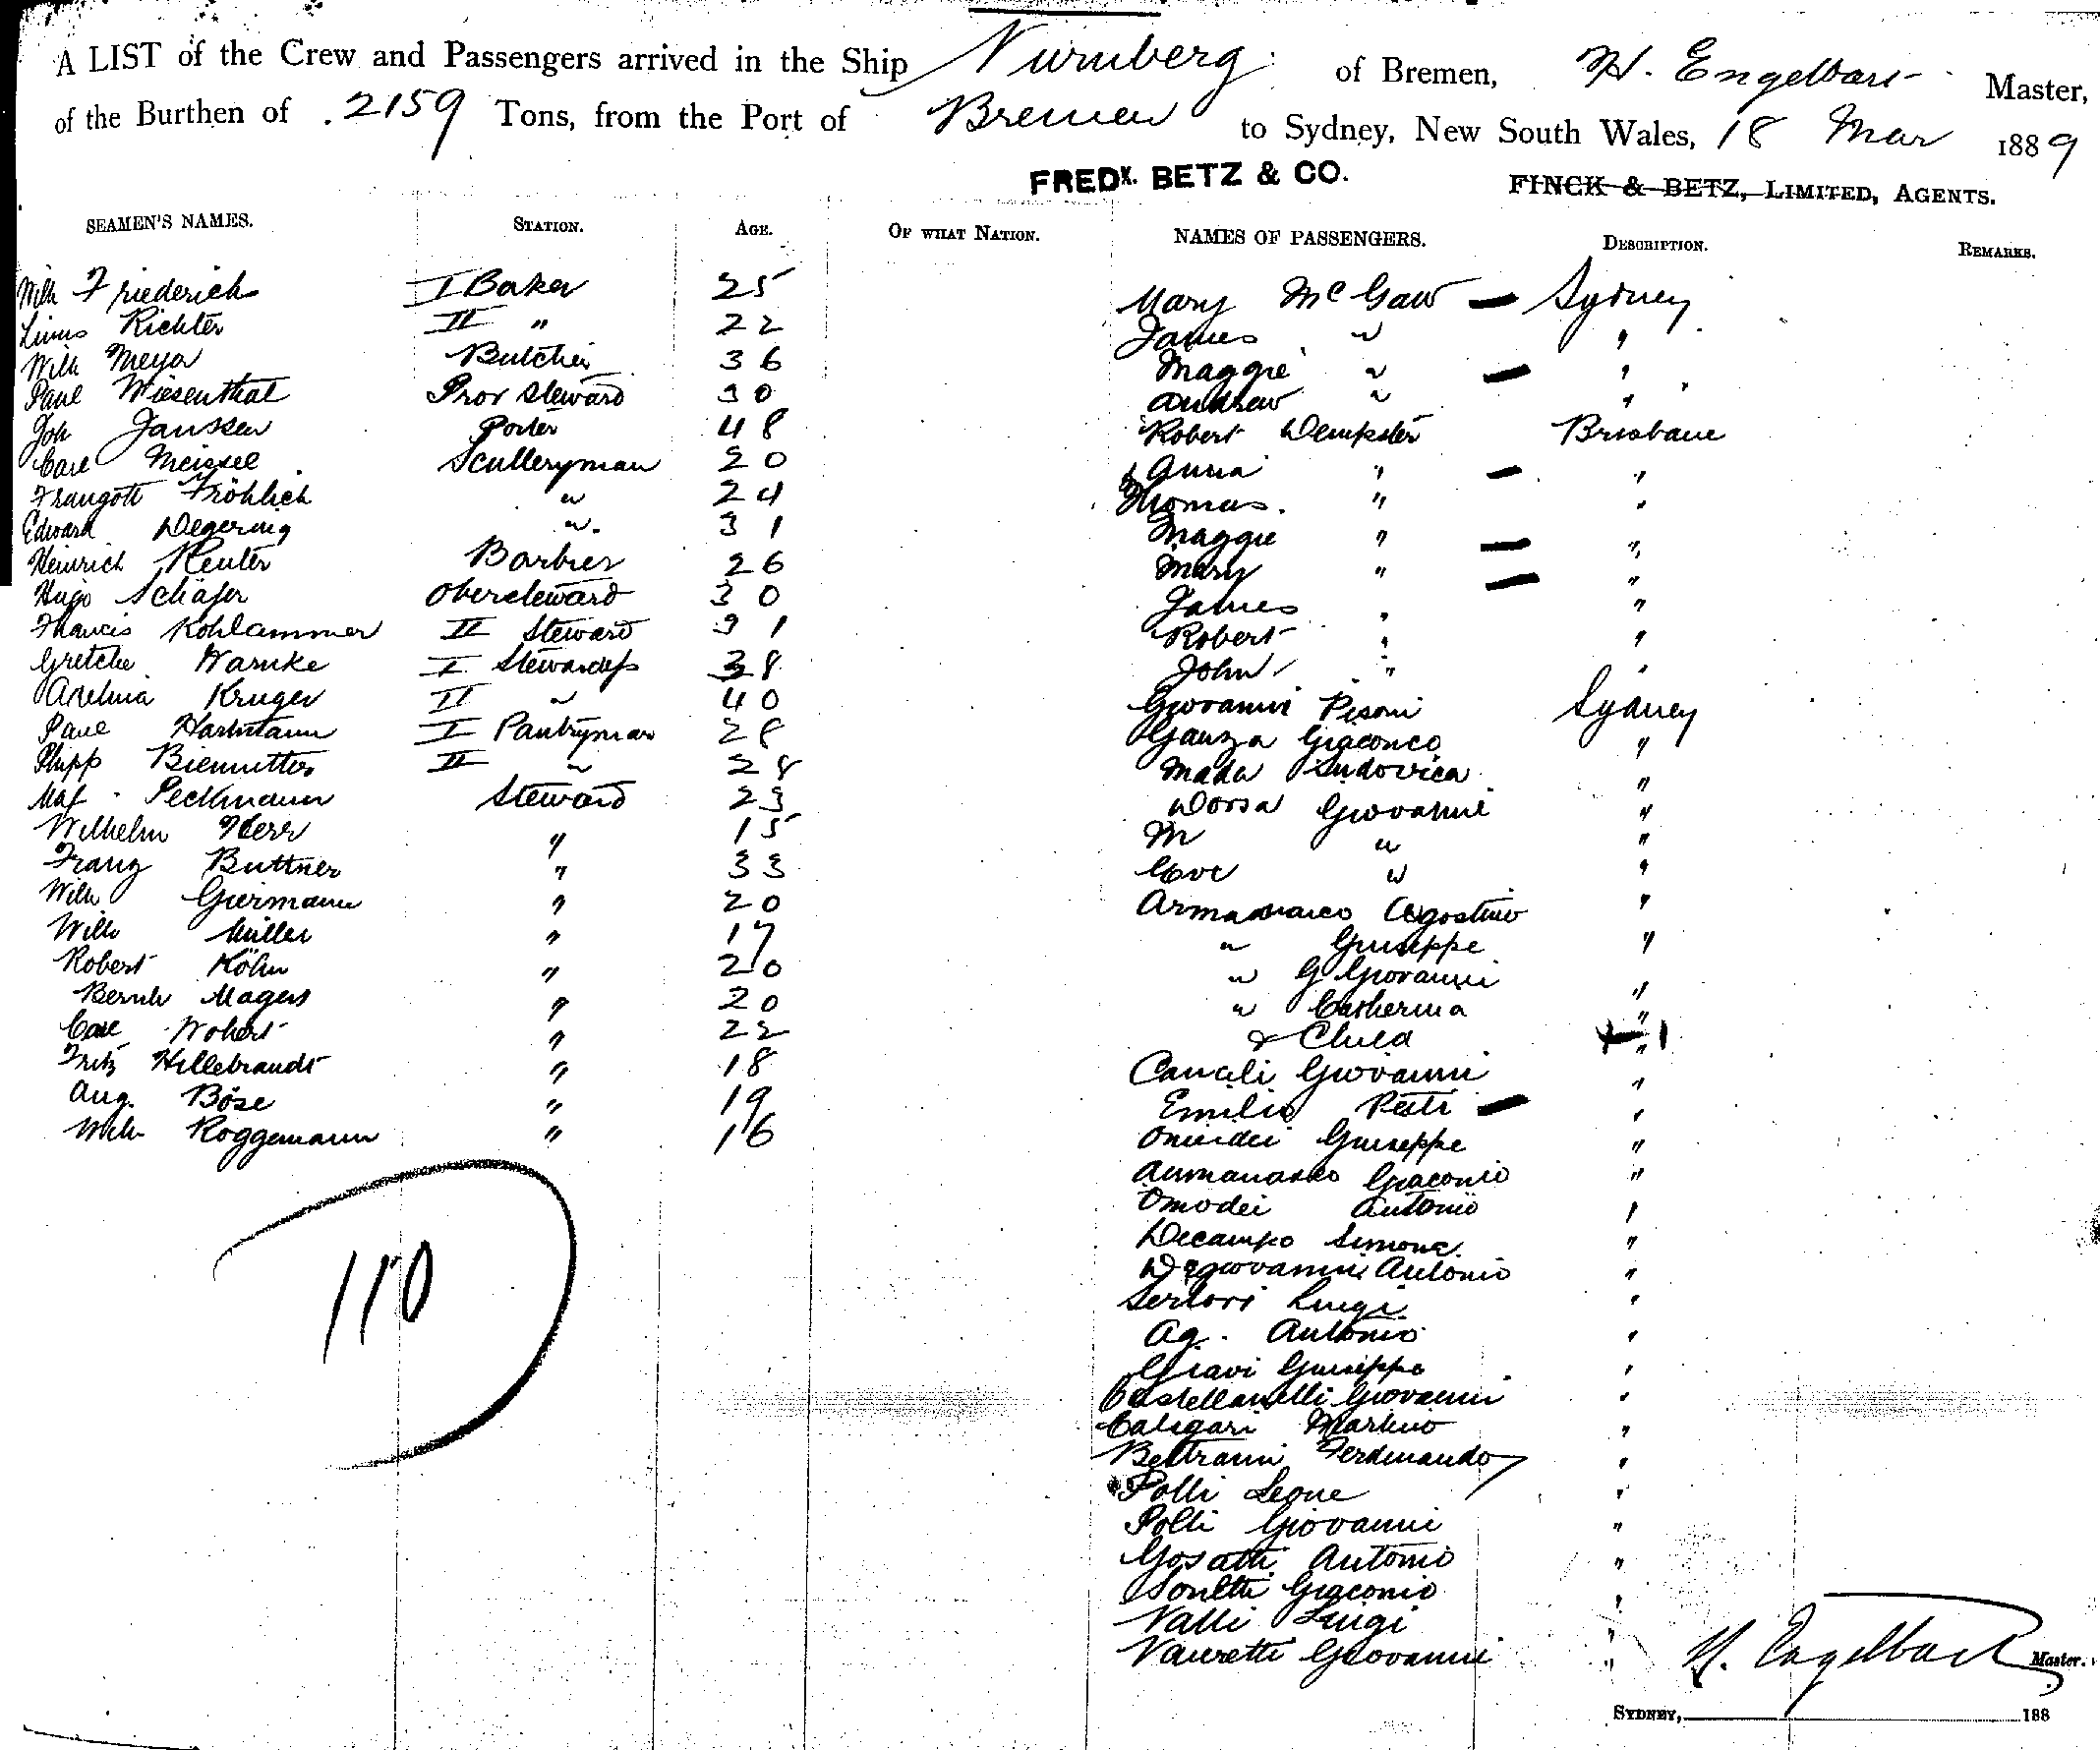 A LIST of the Crew and Passengers arrived in the Ship Nurnberg of Bremen, H. Engelbart Master,
of the Burthen of 2159 Tons, from the Port of Bremen to Sydney, New South Wales, 18 Mar 1889
FREDK. BETZ & CO. FINCK & BETZ, LIMITED, AGENTS.
SEAMEN'S NAMES. STATION. AGE. OF WHAT NATION. NAMES OF PASSENGERS. DESCRIPTION. REMARKS.
Wilh Friederich I Baker 25
Linus Richter II " 22
Wilh Meyer Butcher 36
Paul Wiesenthal Prov Steward 30
Joh Janssen Porter 48
Carl Meissel Sculleryman 20
Traugott Fröhlich " 24
Edward Degering " 31
Heinrich Reuter Barbier 26
Hugo Schäfer Obersteward 30
Francis Kohlammer II Steward 31
Gretche Warnke I Stewardess 38
Kruger II " 40
Paul Hartmann I Pantryman 28
Philipp II " 28
Peckmann Steward 23
Wilhelm Herr " 15
Franz Buttner " 33
Wilh Giermann " 20
Wilh Müller " 17
Robert Köhn " 20
Bernh Magers " 20
Carl Wohert " 22
Fritz Hillebrandt " 18
Aug. Böse " 19
Wilh Roggemann " 16
110
Mary McGaw Sydney
James " "
Maggie " "
Andrew " "
Robert Dempster Brisbane
Anna " "
Thomas " "
Maggie " "
Mary " "
James " "
Robert " "
John " "
Giovanni Pisoni Sydney
Ganza Giacomo "
Mada Ludovica "
Dorsa Giovanni "
M " "
" "
Armanasco Agostino "
" Giuseppe "
" G Giovanni "
" Catherina "
& Child "
Canali Giovanni "
Emilio Petti "
Omodei Giuseppe "
Armanasco Giacomo "
Omodei Antonio "
Decampo Simone "
Degiovanni Antonio "
Sertori Luigi "
Ag. Antonio "
Giuseppe "
Castellanelli Giovanni "
Caligari Martino "
Beltrami Ferdinando "
Polli Leone "
Polli Giovanni "
Gosatti Antonio "
Giacomo "
Valli Luigi "
Giovanni "
H. Engelbart Master.
SYDNEY, 188